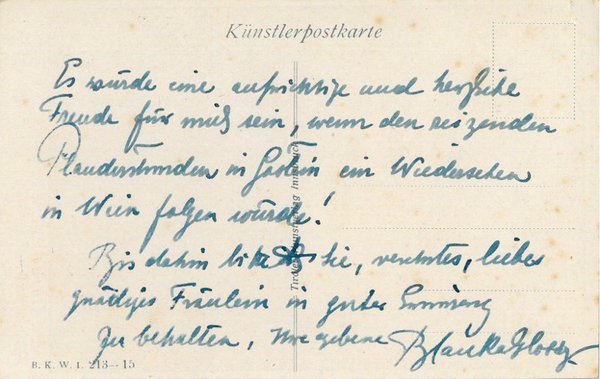 Künstlerpostkarte
Es würde eine aufrichtige und herzliche
Freude für mich sein, wenn den reizenden
Plauderstunden in Gastein ein Wiedersehen
in Wien folgen würde!
Bis dahin bitte Sie, verehrtes, liebes
gnädiges Fräulein in guter Erinnerung
zu behalten, Ihre ergebene Blanka Glossy
B. K. W. I. 213—15